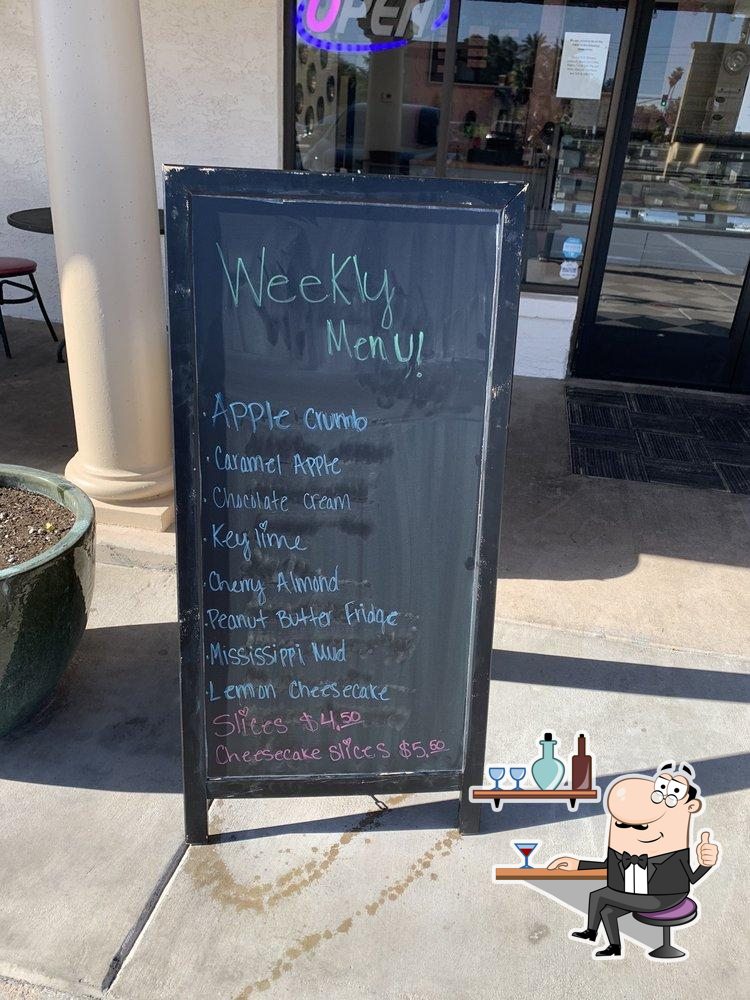 OPEN
Weekly
Menu!
· Apple Crumb
· Caramel Apple
· Chocolate Cream
· Key lime
· Cherry Almond
· Peanut Butter Fridge
· Mississippi Mud
· Lemon Cheesecake
Slices $4.50
Cheesecake Slices $5.50